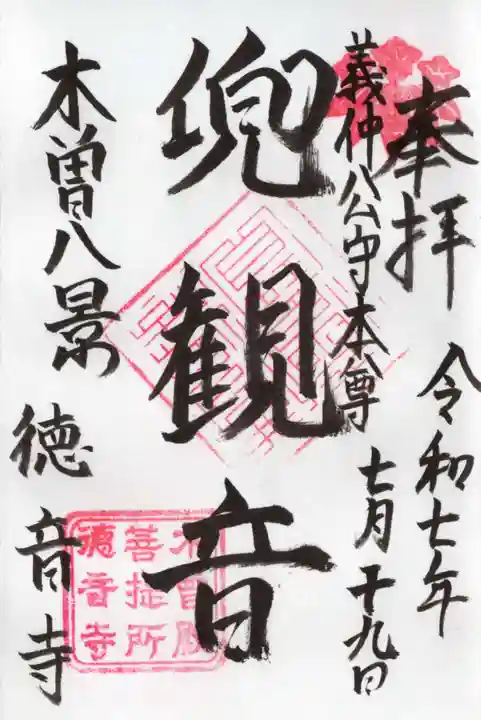 奉拝
令和七年
七月十九日
義仲公守本尊
兜観音
木曽八景
徳音寺
木曽殿
菩提所
徳音寺